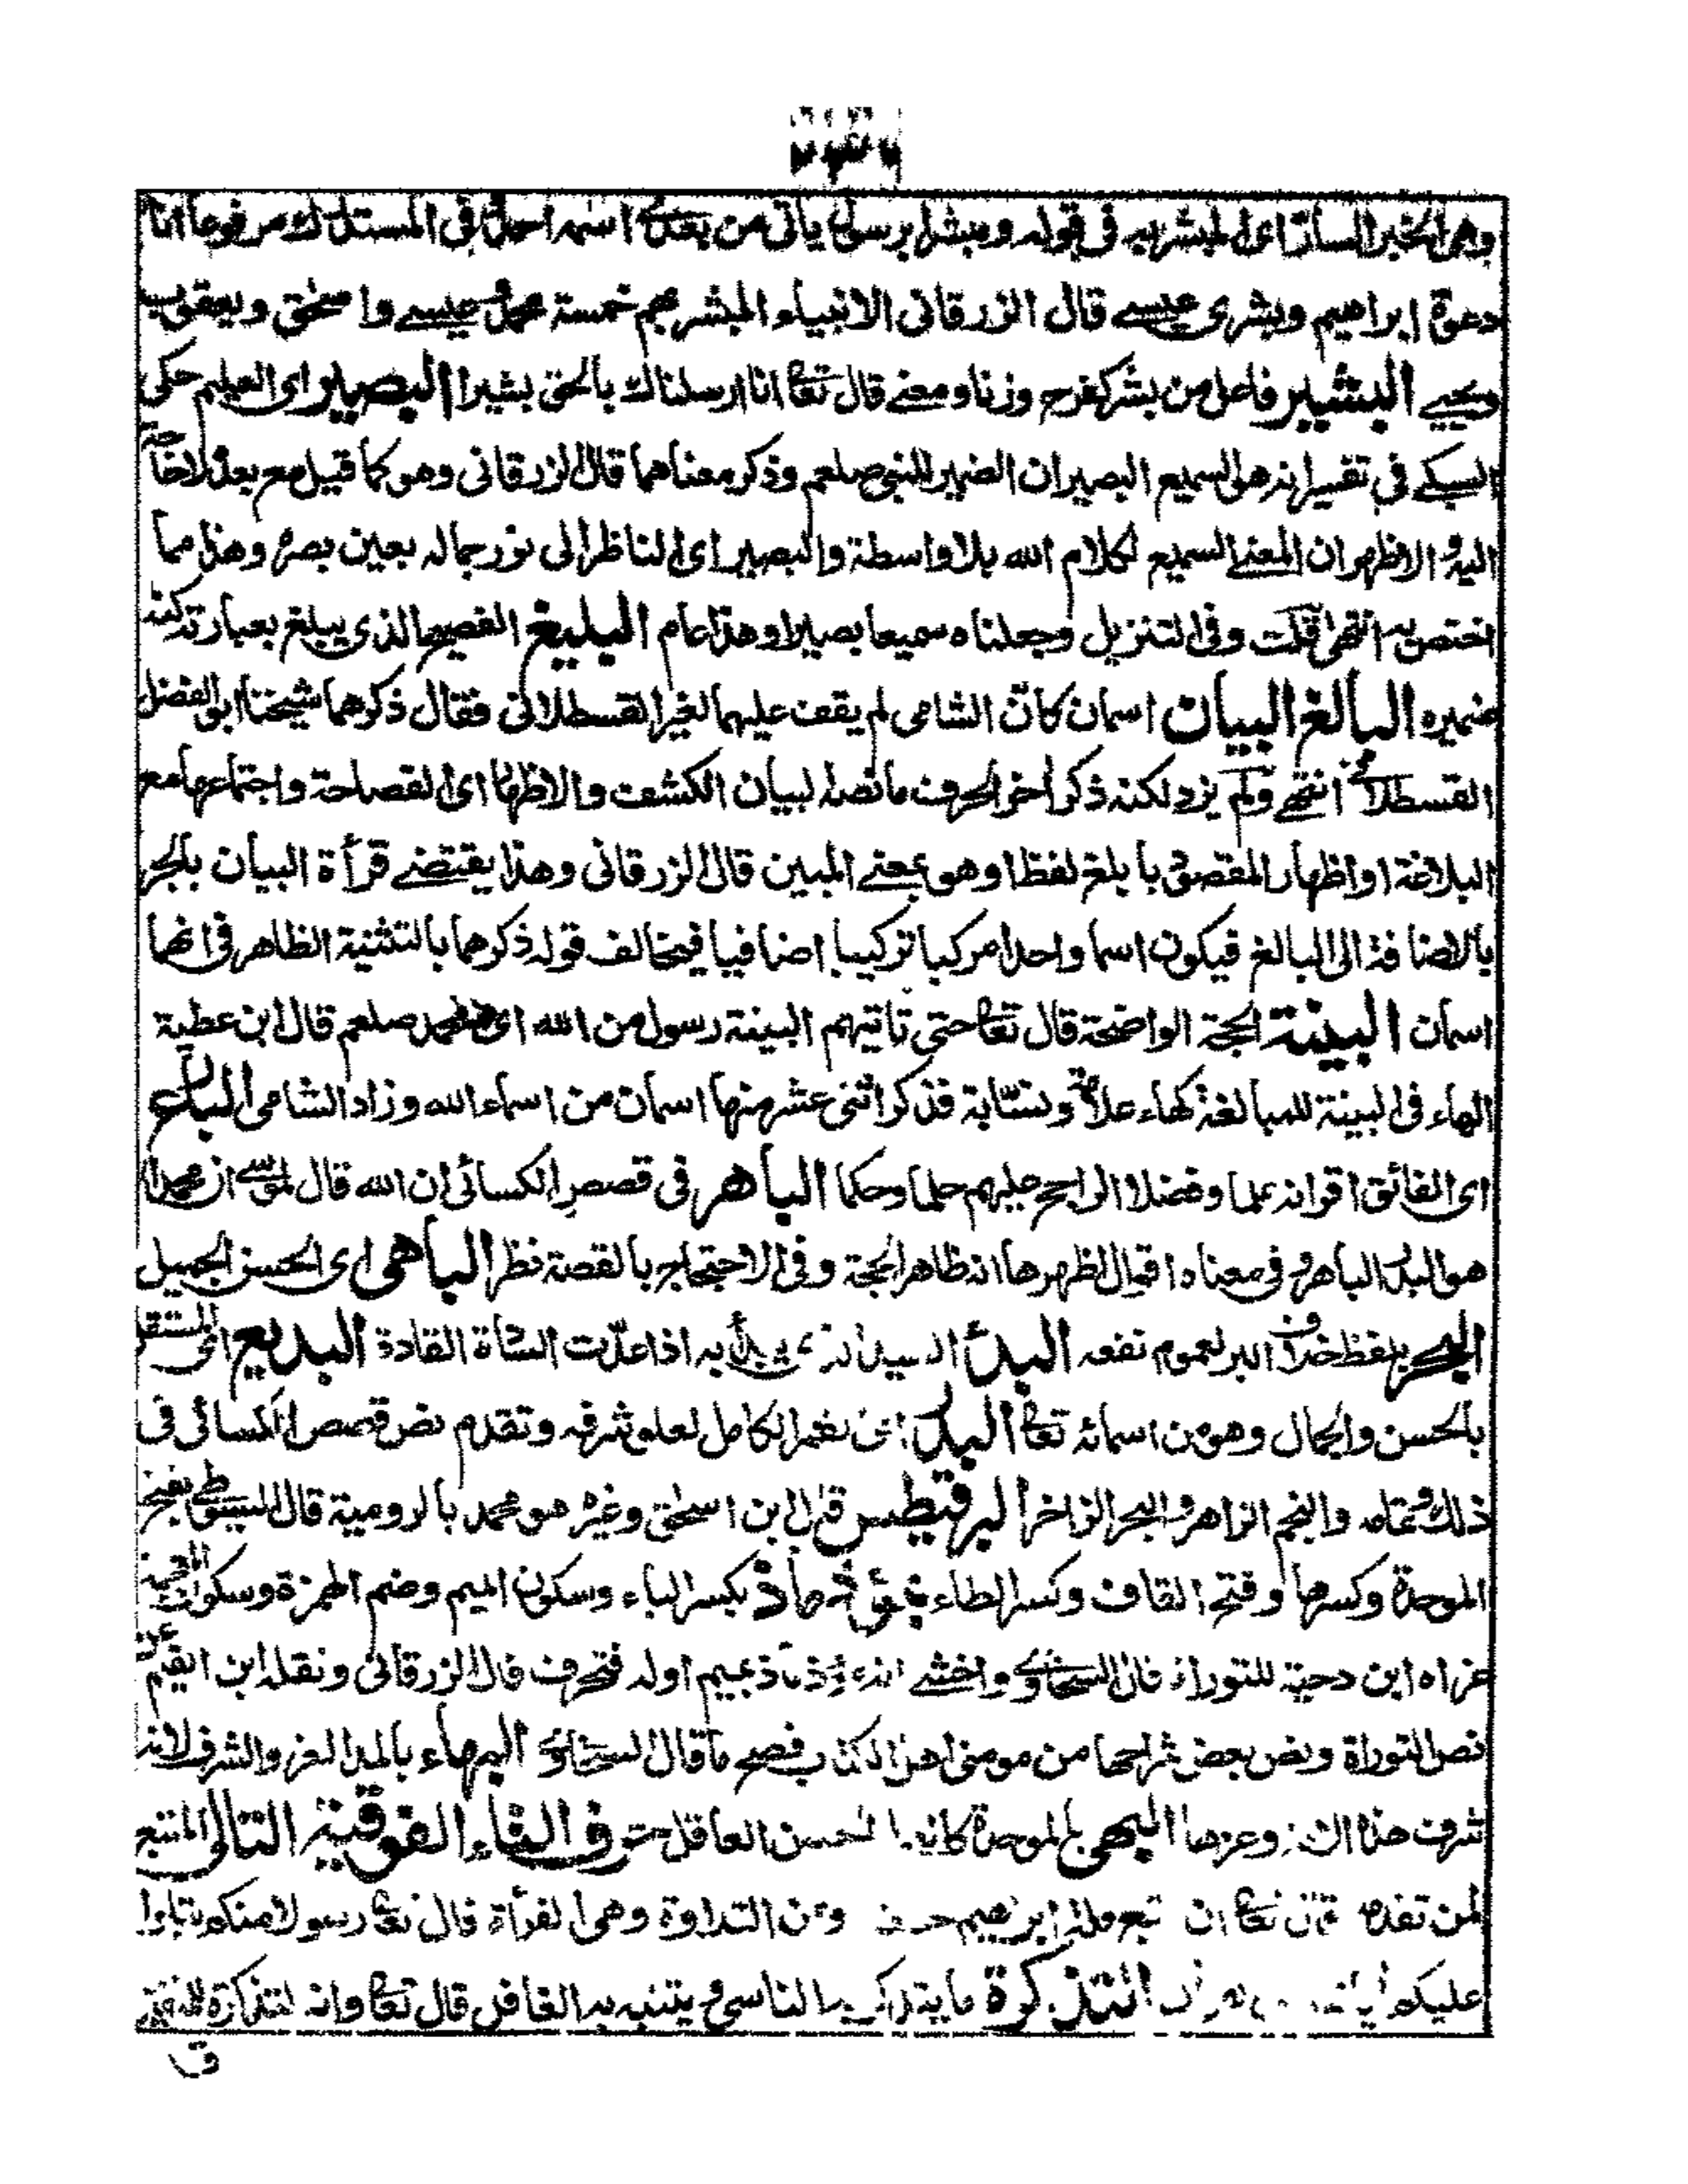 وهى الخبر السار اى المبشر به فى قوله ومبشرا برسول ياتى من بعدى اسمه احمد فى المستدرك مرفوعا انا
دعوة ابراهيم وبشرى عيسى قال الزرقانى الانبياء المبشر بهم خمسة محمد عيسے واسحٰق ويعقوب
ويحيے البشير فاعل من بشر كفرح وزنا ومعنے قال تعا انا ارسلناك بالحق بشيرا البصير اى العليم حكى
السبكے فى تفسير انه هو السميع البصير ان الضمير للنبى صلعم وذكر معناهما قال الزرقانى وهو كما قيل مع بعده لاحاجة
اليه و الاظهر ان المعنے السميع لكلام الله بلا واسطة والبصير اى الناظر الى نور جماله بعين بصره وهذا مما
اختص به انتهى قلت وفى التنزيل وجعلناه سميعا بصيرا وهذا عام البليغ الفصيح الذى يبلغ بعبارته كنه
ضميره البالغ البيان اسمان كان الشامى لم يقف عليهما لغير القسطلانى فقال ذكرهما شيخنا ابو الفضل
القسطلانى انتهے ولم يزد لكنه ذكر اخر الحروف ما نصه البيان الكشف والاظهار اى الفصاحة واجتماعها مع
البلاغة او اظهار المقصود بابلغ لفظ او هو بمعنے المبين قال الزرقانى وهذا يقتضے قرأة البيان بالجر
بالاضافة الى البالغ فيكون اسما واحدا مركبا تركيبا اضافيا فيخالف قوله ذكرهما بالتثنية الظاهر فى انهما
اسمان البينة الحجة الواضحة قال تعا حتى تاتيهم البينة رسول من الله اى محمد صلعم قال ابن عطية
الهاء فى البينة للمبالغة كهاء علامة ونسّابة فذكر اثنى عشر منها اسمان من اسماء الله وزاد الشامى البارع
اى الفائق اقرانه علما وفضلا الراجح عليهم حلما وحكما الباهر فى قصص الكسائى ان الله قال لموسے ان محمدا
هو البدر الباهر و فى معناه اقوال اظهرها انه ظاهر الحجة وفى الاحتجاج بالقصة نظر الباهى اى الحسن الجميل
البحر بلفظ خلاف البر لعموم نفعه البدء السيد الذى يبدأ به اذا عدّت السادة القادة البديع اى المستقل
بالحسن والجمال وهو من اسمائه تعا البدر اى القمر الكامل لعلو شرفه وتقدم نص قصص الكسائى فى
ذلك وتمامه والنجم الزاهر و البحر الزاخر البرقيطس قال ابن اسحٰق وغيره هو محمد بالرومية قال السيوطى بفتح
الموحدة وكسرها وفتح القاف وكسر الطاء بكسر الباء وسكون الميم وضم الهمزة وسكون المعجمة
عزاه ابن دحية للتوراة قال السخاوى واخشے بميم اوله فتحرف قال الزرقانى ونقله ابن القيم عن
نص التوراة ونص بعض شراحها من مومنى اهل الكتاب فصح ما قال السخاوى البهاء بالمد العز والشرف لانه
شرف هذه وعزها البهى بالموحدة كانه الحسن العاقل حرف التاء الفوقية التالى المتبع
لمن تقدمه قال تعا ان تبع ملة ابرهيم من التلاوة وهى القرأة قال تعا رسولا منكم يتلوا
عليكم التذكرة ما يتذكر به الناسى و يتنبه به الغافل قال تعا وانه لتذكرة للمتقين
ق